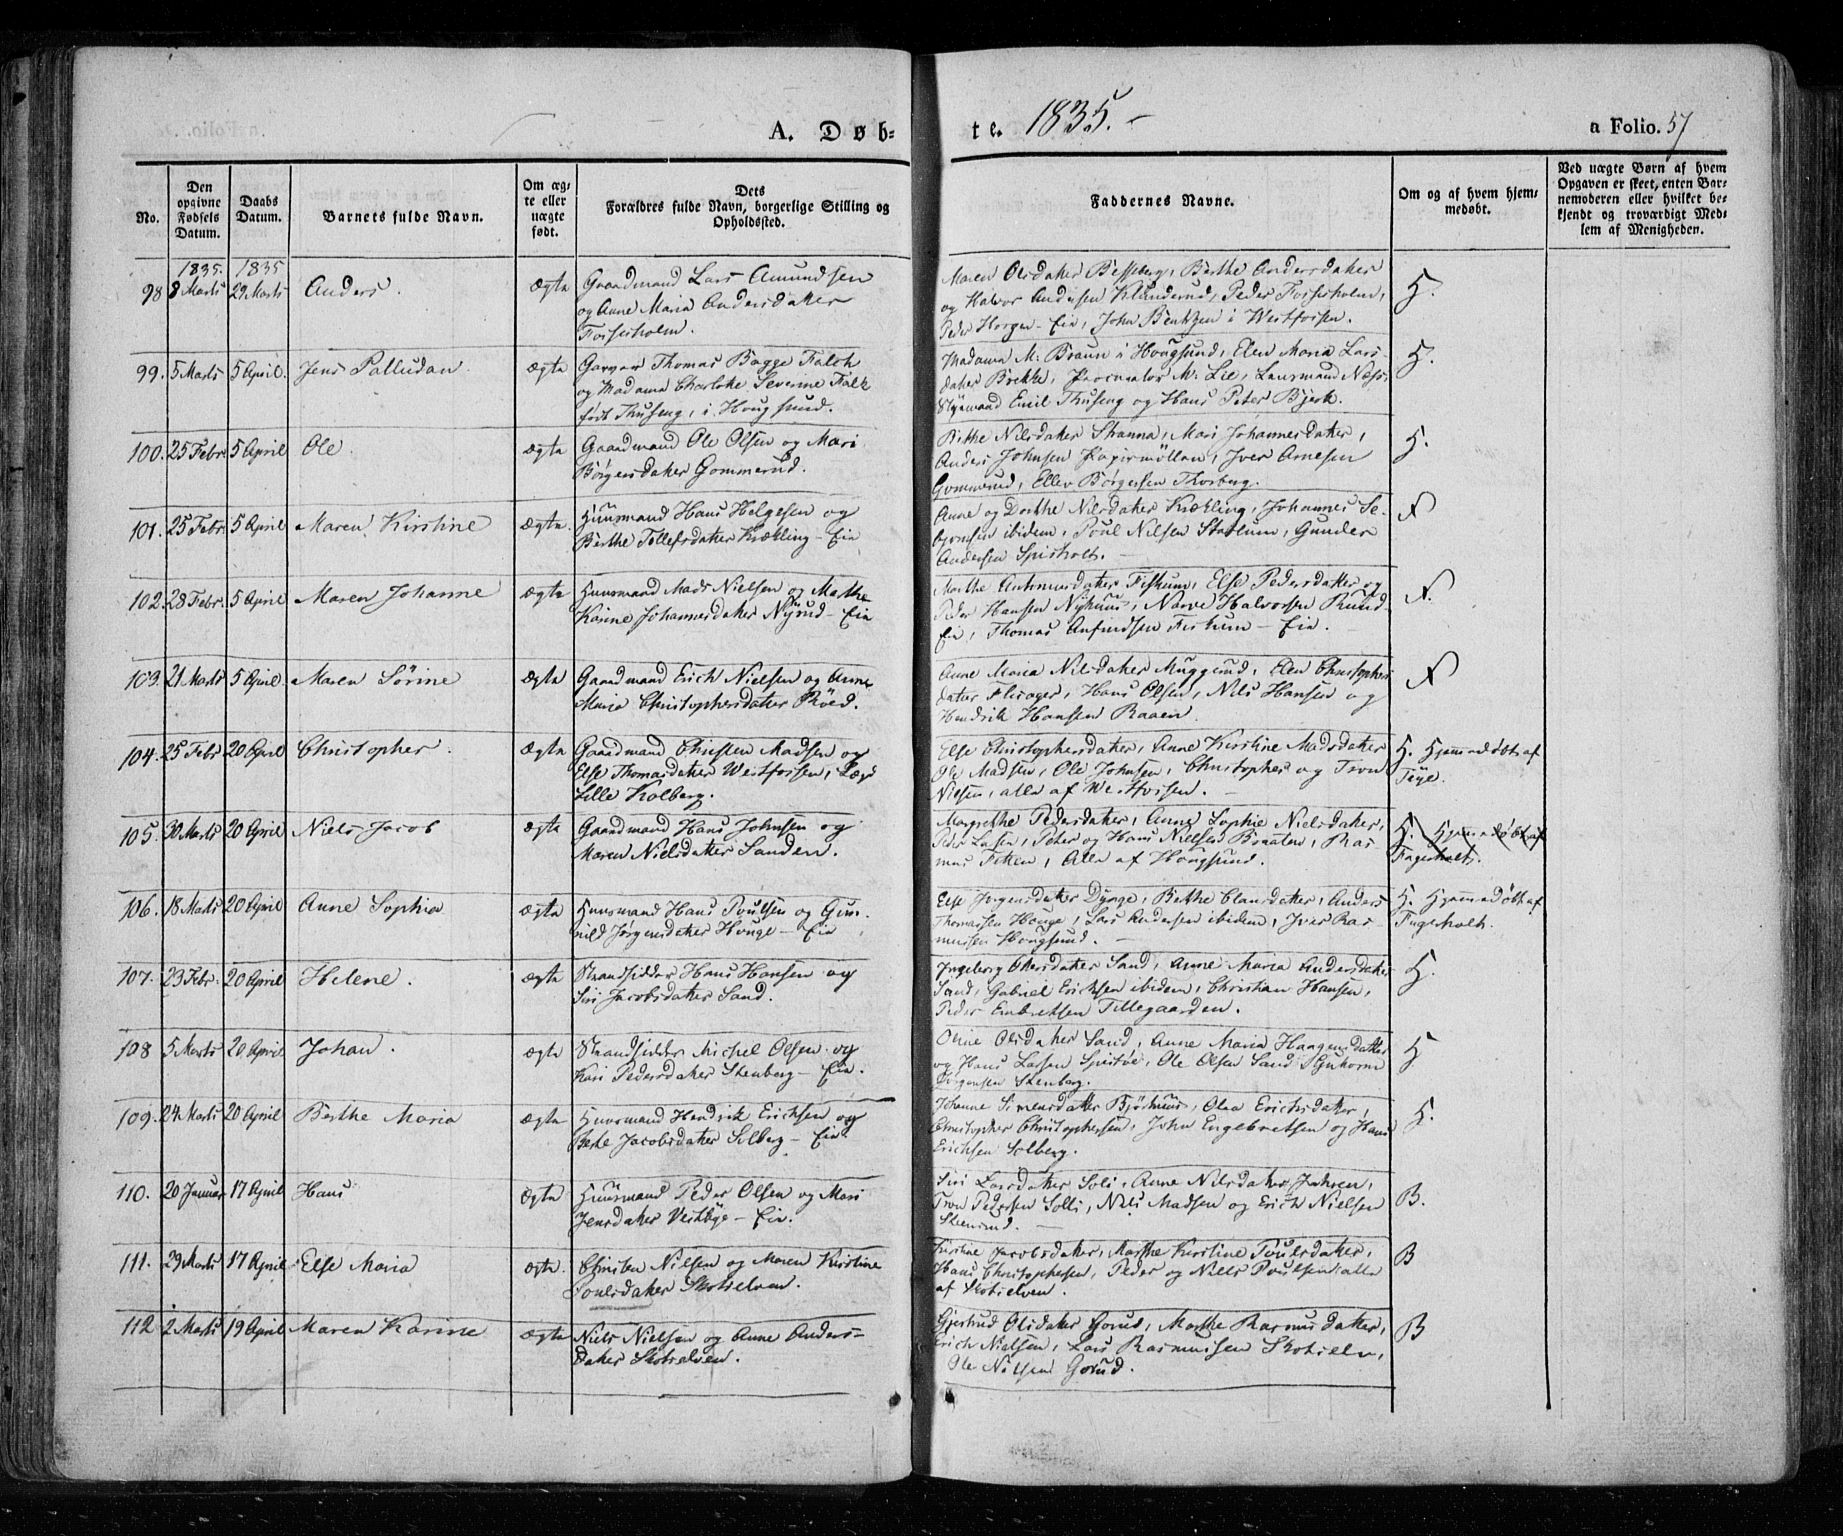 A. Døb-
te. 1835.-
a Folio. 57
No.
Den opgivne Fødsels Datum.
Daabs Datum.
Barnets fulde Navn.
Om ægte eller uægte født.
Dets Forældres fulde Navn, borgerlige Stilling og Opholdssted.
Faddernes Navne.
Om og af hvem hjemmedøbt.
Ved uægte Børn af hvem Opgaven er skeet, enten Barnemoderen eller hvilket bekjendt og troværdigt Medlem af Menigheden.
1835. 1835
98 8 Marts 29 Marts Anders. ægte Gaardmand Lars Amundsen
og Anne Maria Andersdatter
Fossesholm.
Maren Olsdatter Besseberg, Berthe Andersdatter
og Halvor Andersen Klunderud, Peder Fossesholm,
Peder Horgen-Eie, John Bentzen i Westfossen.
H.
99. 5 Marts 5 April. Jens Palludan. ægte Garver Thomas Bagge Falch
og Madame Charlotte Severine Falk
født Thuseng, i Hougsund.
Madame M. Braun i Hougsund, Elen Maria Lars-
datter Brekke, Procurator M. Lie, Lensmand Næss
Styrmand Emil Thuseng og Hans Peter Bjerk.
H.
100. 25 Febr. 5 April Ole. ægte Gaardmand Ole Olsen og Mari
Börgersdatter Gommerud.
Birthe Nilsdatter Stranna, Mari Johannesdatter,
Anders Johnsen Papirmöllen, Iver Arnesen
Gommerud, Ellev Börgersen Thorberg.
H.
101. 25 Febr. 5 April Maren Kirstine ægte. Huusmand Hans Helgesen og
Berthe Tollefsdatter Krekling-Eie
Anne og Dorthe Nilsdatter Krekling, Johannes
ibidem, Poul Nilsen Gunder
Andersen Spisholt.
N
102. 28 Febr. 5 April Maren Johanne ægte Huusmand Mads Nielsen og Mathe
Karine Johannesdatter Nyrud-Eie
Marthe Fiskum, Else Pedersdatter og
Peder Hansen Nyhuus, Narve Halvorsen Ruud-
Eie, Thomas Anfindsen Fiskum-Eie.
N.
103. 21 Marts 5 April Maren Sörine ægte Gaardmand Erich Nielsen og Anne
Maria Christophersdatter Röed.
Anne Maria Nilsdatter Muggerud, Elen Christophers
datter Flisager, Hans Olsen, Nils Hansen og
Hendrik Hansen Raaen.
N
104. 25 Febr 20 April Christopher. ægte Gaardmand Christen Madsen og
Else Thomasdatter Westfossen,
Lille Kolberg.
Else Christophersdatter, Anne Kirstine Madsdatter
Ole Madsen, Ole Johnsen, Christopher og Tron
Nielsen, alle af Westfossen.
H. Hjemmedøbt af
105. 30 Marts 20 April Niels Jacob ægte Gaardmand Hans Johnsen og
Maren Nielsdatter Sanden.
Margrethe Pedersdatter, Anne Sophie Nielsdatter,
Peder Larsen, Peter og Hans Nielsen Braaten, Ras-
mus alle af Hougsund.
H. Hjemmedøbt af
Fagerholt.
106. 18 Marts 20 April Anne Sophia ægte Huusmand Hans Poulsen og Gun-
nild Jørgensdatter Houge-Eie
Else Jørgensdatter Dynge, Berthe Clausdatter, Anders
Thomassen Houge, Lars Andersen ibidem, Iver Ras-
mussen Hougsund.
H. Hjemmedøbt af
Fagerholt.
107. 23 Febr. 20 April Helene. ægte Strandsidder Hans Hansen og
Siri Jacobsdatter Sand.
Ingeborg Sand, Anne Maria Andersdatter
Sand, Gabriel Erichsen ibidem, Christian Hansen,
Peder Embretsen Tillegaarden.
H.
108 5 Marts 20 April Johan. ægte Strandsidder Michel Olsen og
Kari Pedersdatter Stenberg-Eie.
Oline Olsdatter Sand, Anne Maria Haagensdatter
og Hans Larsen Ole Olsen Sand
Jörgensen Stenberg.
H
109. 24 Marts 20 April Berthe Maria ægte Huusmand Hendrik Erichsen og
Berte Jacobsdatter Solberg-Eie
Johanne Simensdatter Björkhuus, Olea Erichsdatter,
Christopher Christophersen, John Engebretsen og Hans
Erichsen Solberg.
H.
110. 20 Januar 17 April Hans ægte Huusmand Peder Olsen og Mari
Jensdatter Vestbye-Eie.
Siri Larsdatter Soli, Anne Nilsdatter Jahren,
Tron Pedersen Solli, Nils Madsen og Erich Nielsen
Steenrud.
B.
111. 29 Marts 17 April Else Maria ægte. Christen Nielsen og Maren Kirstine
Poulsdatter Skotselven.
Kirstine Jacobsdatter, Marthe Kirstine Poulsdatter,
Hans Christophersen, Peder og Niels Poulsen: alle
af Skotselven.
B
112 2 Marts 19 April Maren Karine ægte Niels Nielsen og Anne Anders-
datter Skotselven.
Gjertrud Olsdatter Gorud, Marthe Rasmusdatter,
Erich Nielsen, Lars Rasmussen Skotselv,
Ole Nilsen Gorud.
B